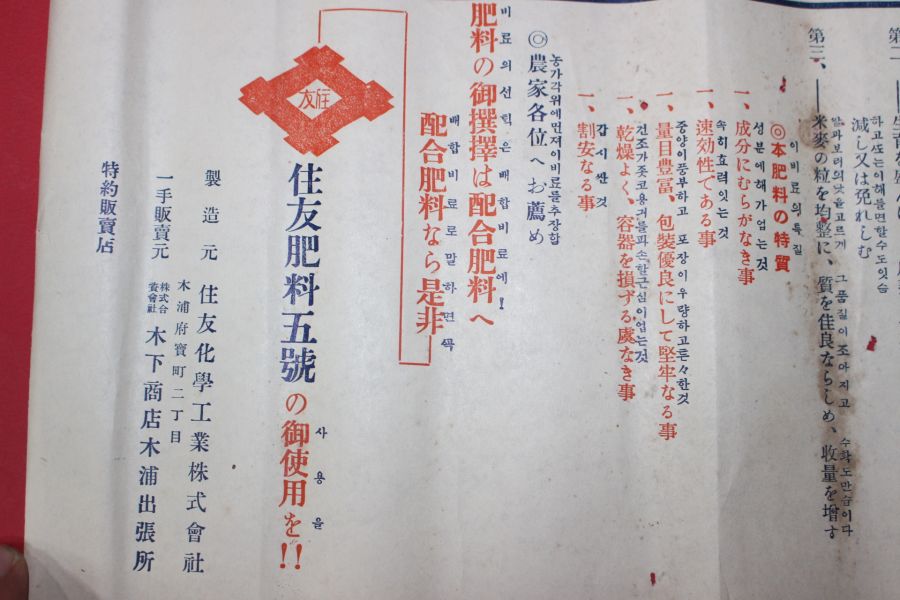 第二、
하고또는이해를면할수도잇슴
減し又は免れしむ
알과보리의낫을고르게 그품질이조아지고 수확도만습이다
第三、――米麥の粒を均整に、質を佳良ならしめ、收量を增す
이비료의특질
◎本肥料の特質
성분에해가업는것
一、成分にむらがなき事
속히효력잇는것
一、速効性である事
중양이풍부하고 포장이우량하고른々한것
一、量目豊富、包裝優良にして堅牢なる事
건조가좃코용긔를파손할근심이업는것
一、乾燥よく、容器を損ずる虞なき事
갑시싼것
一、割安なる事
농가각위에먼저이비료를추장합
◎農家各位へお薦め
비료의선퇵은배합비료에!
肥料の御撰擇は配合肥料へ
배합비료로말하면꼭
配合肥料なら是非
住友
사용을
住友肥料五號の御使用を!!
製造元 住友化學工業株式會社
木浦府寶町二丁目
一手販賣元 株式合資會社 木下商店木浦出張所
特約販賣店